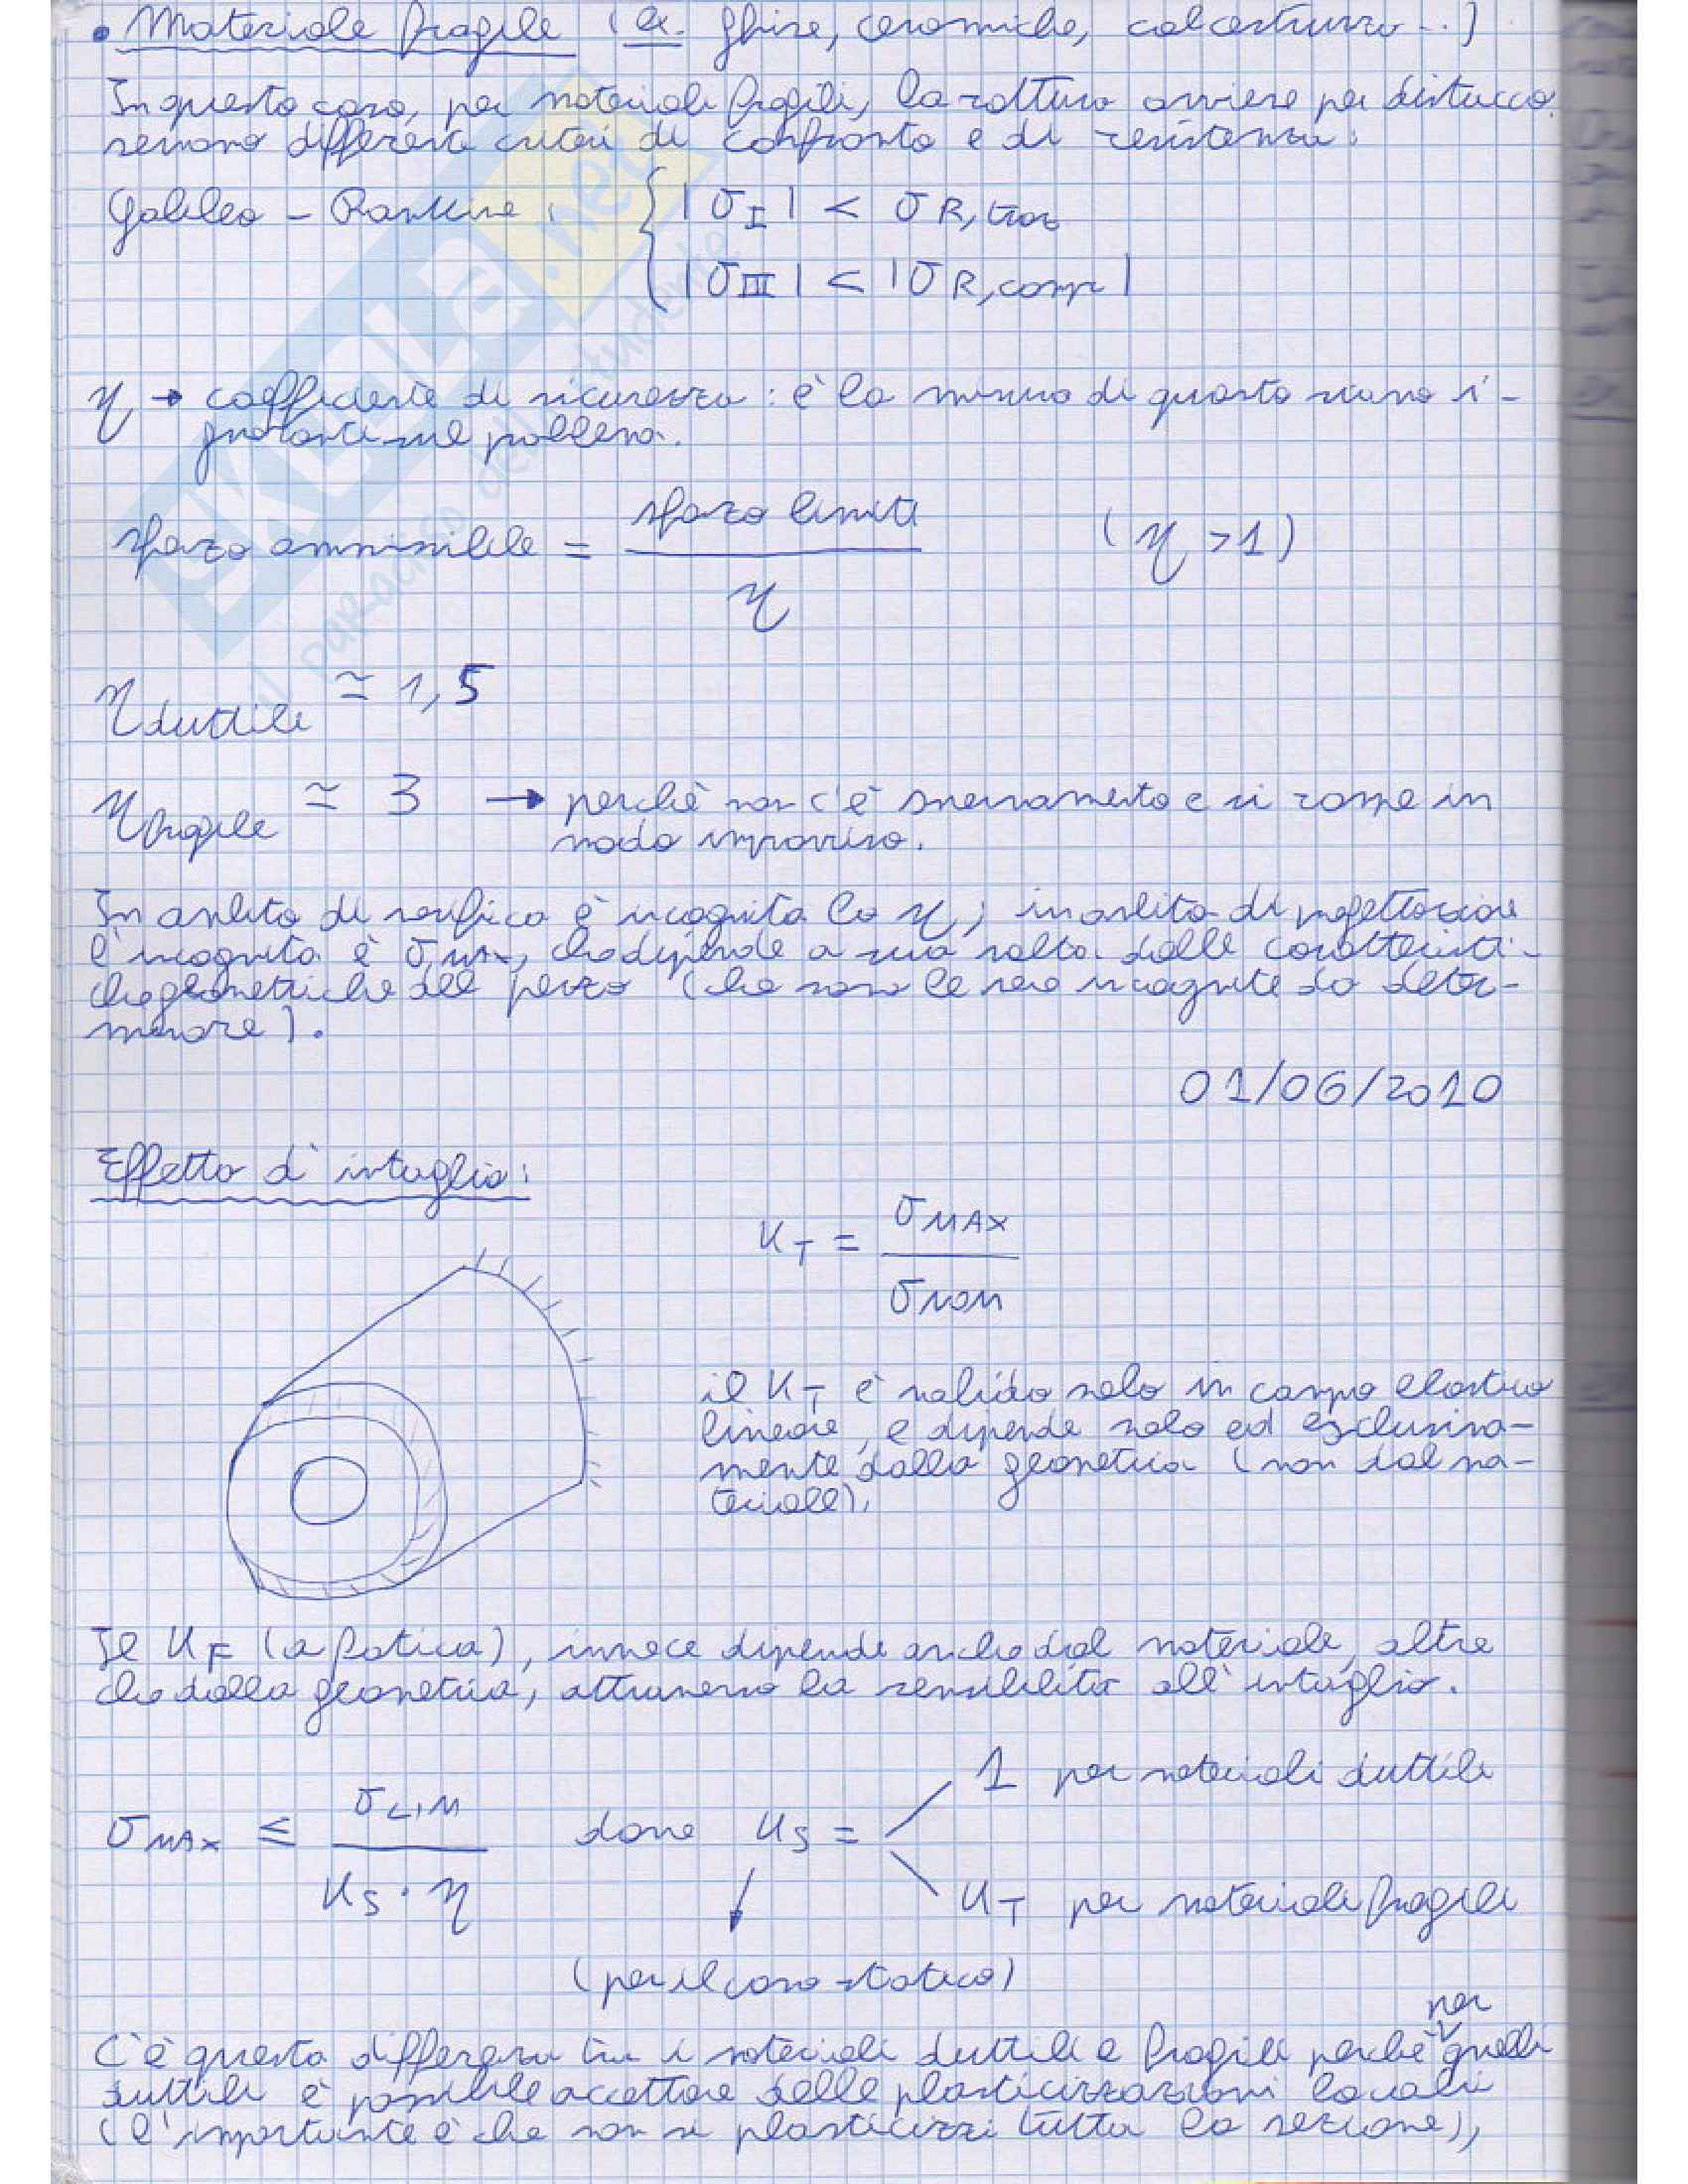 • Materiale fragile (es. ghise, ceramiche, calcestruzzo...)
In questo caso, per materiali fragili, la rottura avviene per distacco.
servono differenti criteri di confronto e di resistenza:
Galileo - Rankine: { |σ_I| < σ_R,traz
|σ_III| < |σ_R,compr|
η → coefficiente di sicurezza: è la misura di quanto siamo i-
gnoranti sul problema.
sforzo ammissibile = sforzo limite / η (η > 1)
η_duttile ≃ 1,5
η_fragile ≃ 3 → perchè non c'è snervamento e si rompe in
modo improvviso.
In ambito di verifica è incognita lo η; in ambito di progettazione
l'incognita è σ_MAX, che dipende a sua volta dalle caratteristi-
che geometriche del pezzo (che sono le vere incognite da deter-
minare).
01/06/2010
Effetto d'intaglio:
K_T = σ_MAX / σ_NOM
il K_T è valido solo in campo elastico
lineare, e dipende solo ed esclusiva-
mente dalla geometria (non dal ma-
teriale).
Il K_F (a fatica), invece dipende anche dal materiale, oltre
che dalla geometria, attraverso la sensibilità all'intaglio.
σ_MAX ≤ σ_LIM / K_S · η dove K_S = 1 per materiali duttili
K_T per materiali fragili
(per il caso statico)
C'è questa differenza tra i materiali duttili e fragili perchè per quelli
duttili è possibile accettare delle plasticizzazioni locali
(l'importante è che non si plasticizzi tutta la sezione),
SKUOLA.net
il paradiso dello studente